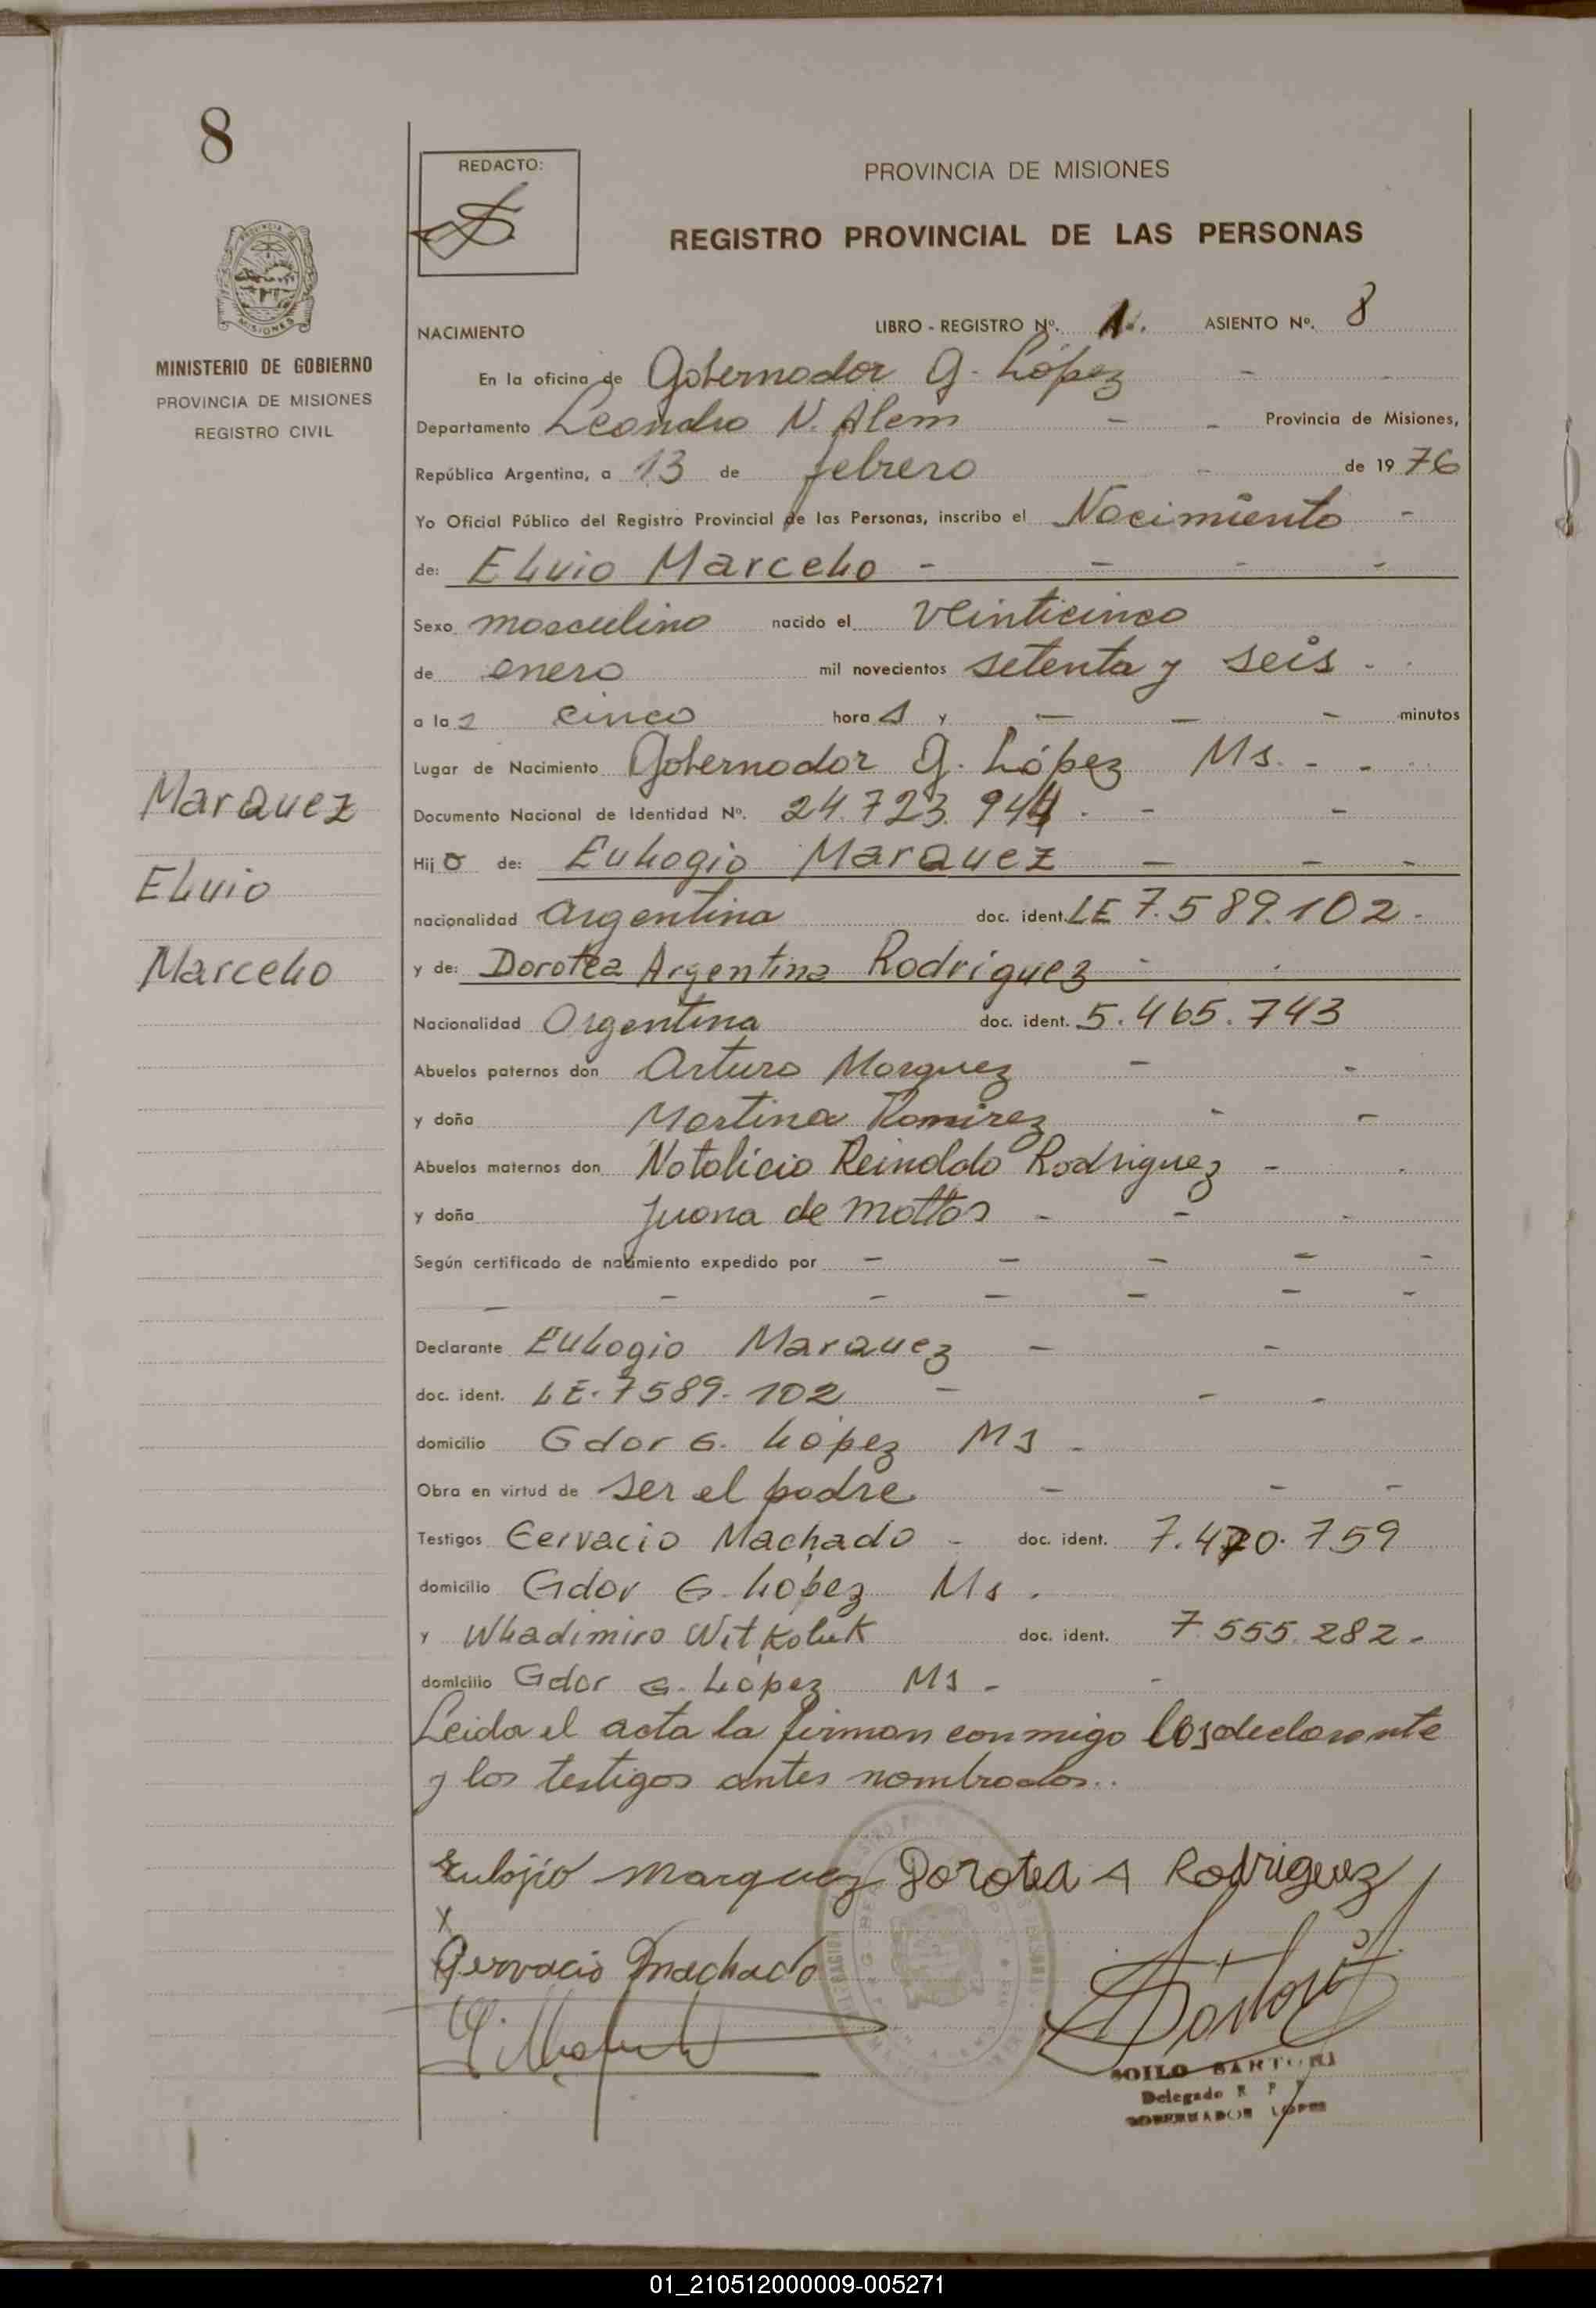 8
REDACTO:
PROVINCIA DE MISIONES
REGISTRO PROVINCIAL DE LAS PERSONAS
MISIONES
MINISTERIO DE GOBIERNO
PROVINCIA DE MISIONES
REGISTRO CIVIL
NACIMIENTO LIBRO - REGISTRO Nº. 1. ASIENTO Nº. 8
En la oficina de Gobernador G. López - -
Departamento Leandro N. Alem - - Provincia de Misiones,
República Argentina, a 13 de febrero - de 19 76
Yo Oficial Público del Registro Provincial de las Personas, inscribo el Nacimiento -
de: Elvio Marcelo - - - -
Sexo masculino nacido el veinticinco
de enero mil novecientos setenta y seis - .
a las cinco horas y - - - minutos
Lugar de Nacimiento Gobernador G. López Ms. - -
Documento Nacional de Identidad Nº. 24.723.944 - - -
Hijo de: Eulogio Marquez - - -
nacionalidad Argentina doc. ident. LE 7.589.102 -
y de: Dorotea Argentina Rodriguez -
Nacionalidad Argentina doc. ident. 5.465.743
Abuelos paternos don Arturo Marquez - -
y doña Martina Ramirez - -
Abuelos maternos don Natalicio Reinaldo Rodriguez - .
y doña Juana de Mattos - - -
Según certificado de nacimiento expedido por - - - - -
- - - - - - -
Marquez
Elvio
Marcelo
Declarante Eulogio Marquez - -
doc. ident. LE. 7589.102 - - -
domicilio Gdor G. López Ms -
Obra en virtud de ser el padre - - -
Testigos Gervacio Machado - doc. ident. 7.420.759
domicilio Gdor G. López Ms .
y Wladimiro Witkoluk doc. ident. 7.555.282 -
domicilio Gdor G. López Ms - -
Leida el acta la firman conmigo los declarante
y los testigos antes nombrados..
Eulojio marquez Dorotea A Rodriguez
x
Gervacio Machado
SOILO SARTORI
Delegado R P
GOBERNADOR LOPEZ
01_210512000009-005271